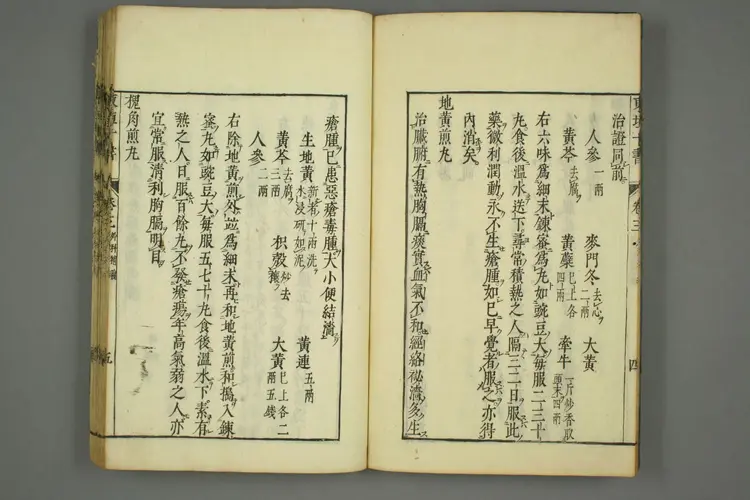 治證同前
人參一兩 麥門冬去心二兩 大黃
黃芩去腐 黃蘗已上各四兩 牽牛一斤炒香取頭末四兩
右六味爲細末煉蜜爲丸如豌豆大每服二三十
丸食後溫水送下尋常積熱之人隔三二日服此
藥微利潤動永不生瘡腫如已早覺者服之亦得
內消矣
地黃煎丸
治臟腑有熱胸膈痰實血氣不和經絡祕濇多生
瘡腫已患惡瘡毒腫大小便結濇
生地黃新者十兩洗木浸研如泥 黃連五兩
黃芩去腐三兩 枳殼炒去穰 大黃已上各二兩五錢
人參二兩
右除地黃煎外並爲細末再和地黃煎和搗入煉
蜜丸如豌豆大每服五七十丸食後溫水下素有
熱之人日服百餘丸不發瘡瘍年高氣弱之人亦
宜常服清利胸膈明目
犀角煎丸
卷三
四